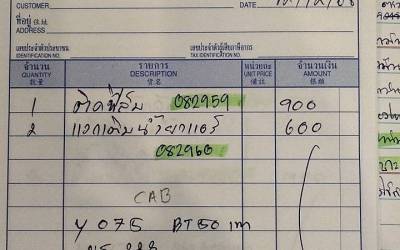 CUSTOMER DATE
ที่อยู่
ADDRESS
เลขประจำตัวประชาชน เลขประจำตัวผู้เสียภาษีอากร
IDENTIFICATION NO. TAX IDENTIFICATION NO.
จำนวน รายการ หน่วยละ จำนวนเงิน
QUANTITY DESCRIPTION UNIT PRICE AMOUNT
数量 貨名 備註 銀額
1 ติดฟิล์ม 082959 900
2 แวคเติมน้ำยาแอร์ 600
082960
CAB
4 075 BT50 เทา